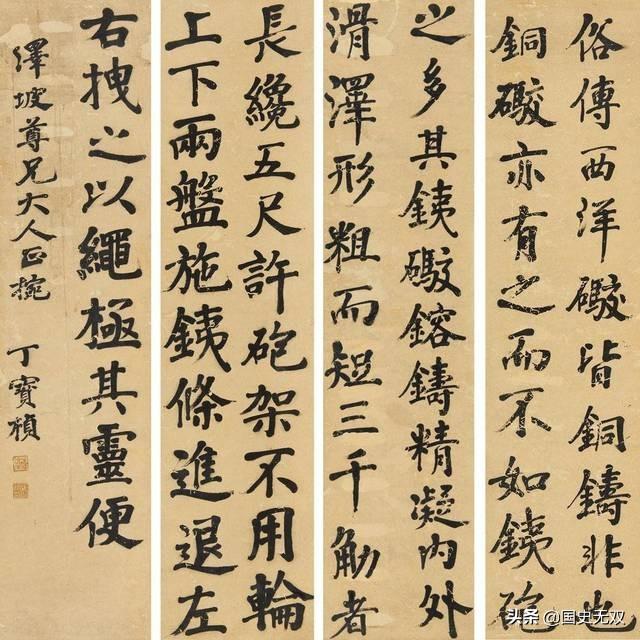 俗傳西洋礮皆銅鑄非也
銅礮亦有之而不如銕砲
之多其銕礮鎔鑄精凝内外
滑澤形粗而短三千觔者
長纔五尺許砲架不用輪
上下兩盤施銕條進退左
右拽之以繩極其靈便
繹坡尊兄大人正捥 丁寶楨
头条 @国史无双